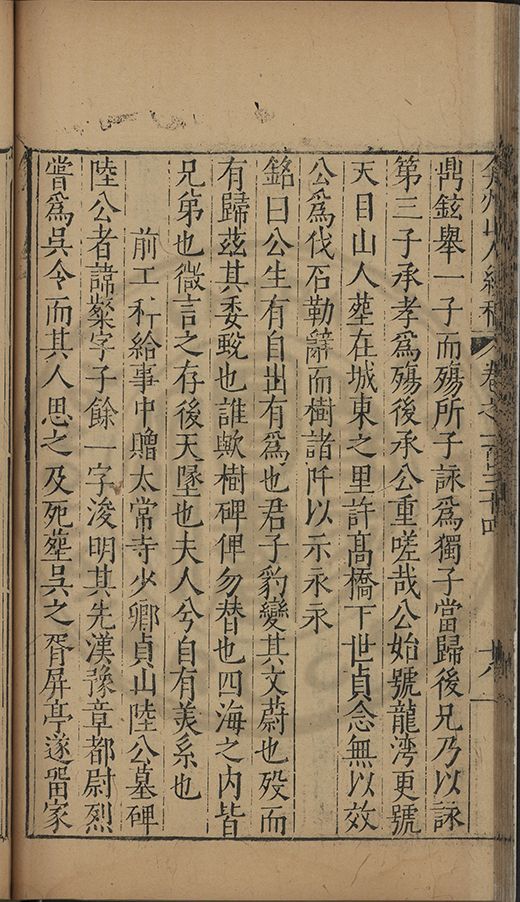 弇州山人續稿 卷之一百三十四 十八
鼎鉉舉一子而殤所子詠爲獨子當歸後兄乃以詠
第三子承孝爲殤後承公重嗟哉公始號龍灣更號
天目山人塟在城東之里許髙橋下世貞念無以效
公爲伐石勒辭而樹諸阡以示永永
銘曰公生有自出有爲也君子豹變其文蔚也歿而
有歸茲其委蛻也誰歟樹碑俾勿替也四海之內皆
兄弟也微言之存後天墜也夫人兮自有美系也
前工科給事中贈太常寺少卿貞山陸公墓碑
陸公者諱粲字子餘一字浚明其先漢豫章都尉烈
嘗爲吳令而其人思之及死塟吳之胥屏亭遂畱家